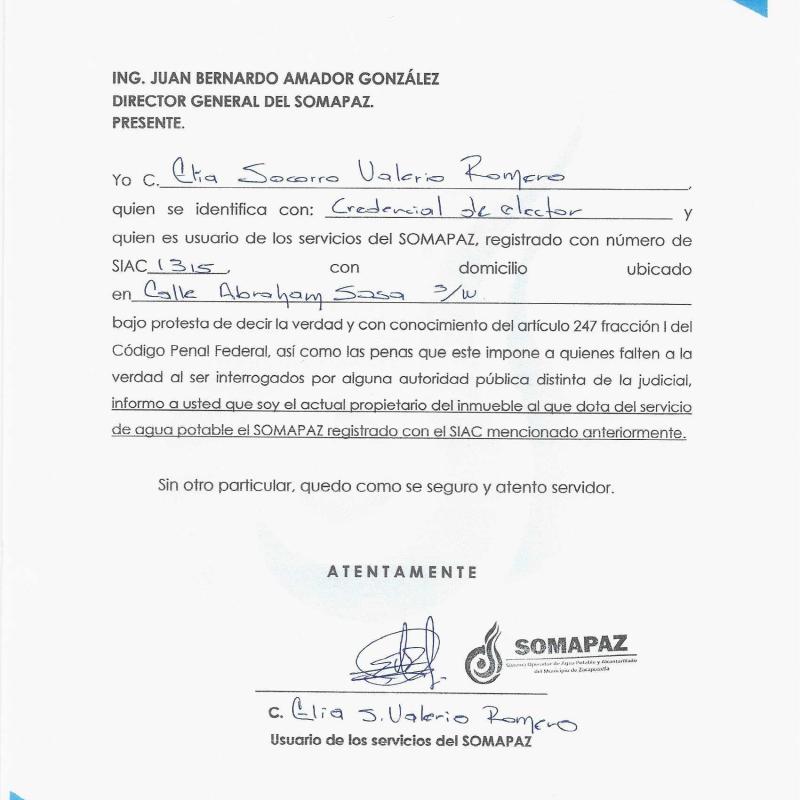 ING. JUAN BERNARDO AMADOR GONZÁLEZ
DIRECTOR GENERAL DEL SOMAPAZ.
PRESENTE.
Yo C. Elia Socorro Valerio Romero,
quien se identifica con: Credencial de elector y
quien es usuario de los servicios del SOMAPAZ, registrado con número de
SIAC 1315, con domicilio ubicado
en Calle Abraham Sosa s/n
bajo protesta de decir la verdad y con conocimiento del artículo 247 fracción I del
Código Penal Federal, así como las penas que este impone a quienes falten a la
verdad al ser interrogados por alguna autoridad pública distinta de la judicial,
informo a usted que soy el actual propietario del inmueble al que dota del servicio
de agua potable el SOMAPAZ registrado con el SIAC mencionado anteriormente.
Sin otro particular, quedo como se seguro y atento servidor.
ATENTAMENTE
SOMAPAZ
Sistema Operador de Agua Potable y Alcantarillado
del Municipio de Zacapoaxtla
C. Elia S. Valerio Romero
Usuario de los servicios del SOMAPAZ